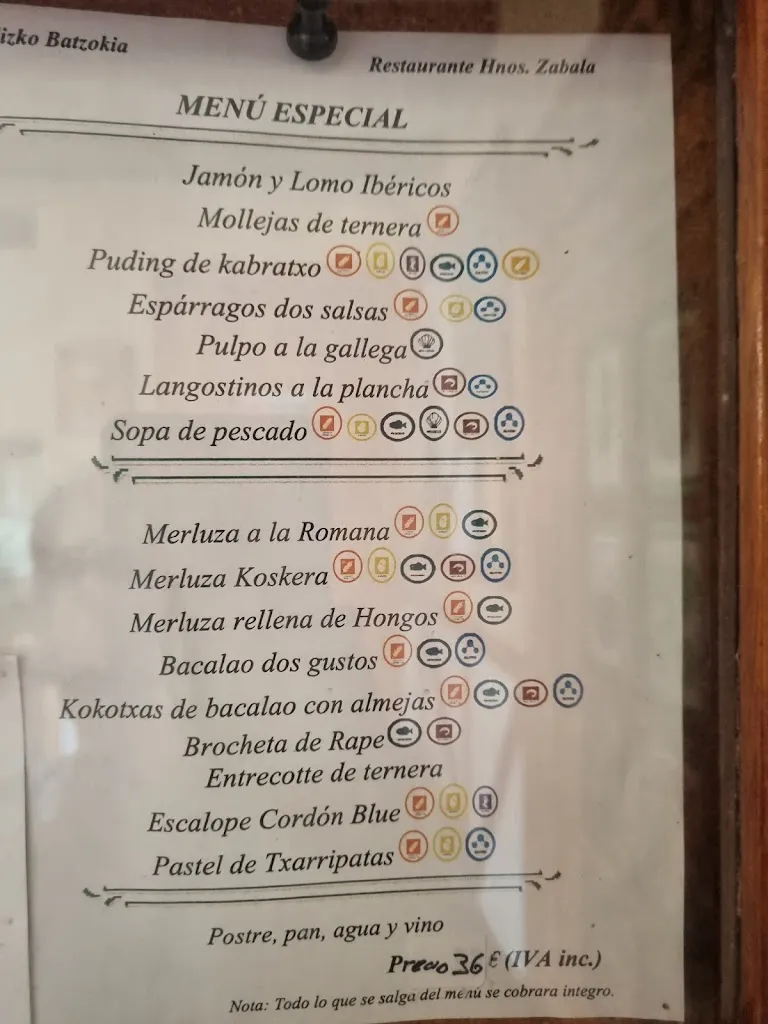 izko Batzokia
Restaurante Hnos. Zabala
MENÚ ESPECIAL
Jamón y Lomo Ibéricos
Mollejas de ternera
Puding de kabratxo
Espárragos dos salsas
Pulpo a la gallega
Langostinos a la plancha
Sopa de pescado
Merluza a la Romana
Merluza Koskera
Merluza rellena de Hongos
Bacalao dos gustos
Kokotxas de bacalao con almejas
Brocheta de Rape
Entrecotte de ternera
Escalope Cordón Blue
Pastel de Txarripatas
Postre, pan, agua y vino
Precio 36 € (IVA inc.)
Nota: Todo lo que se salga del menú se cobrara integro.